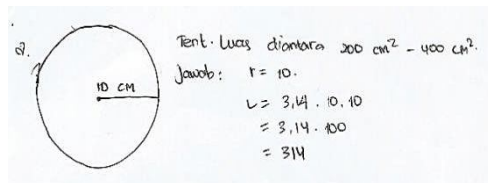 2.
10 CM
Tent. Luas diantara 200 cm² - 400 cm².
Jawab : r = 10.
L = 3,14 . 10.10
= 3,14 . 100
= 314